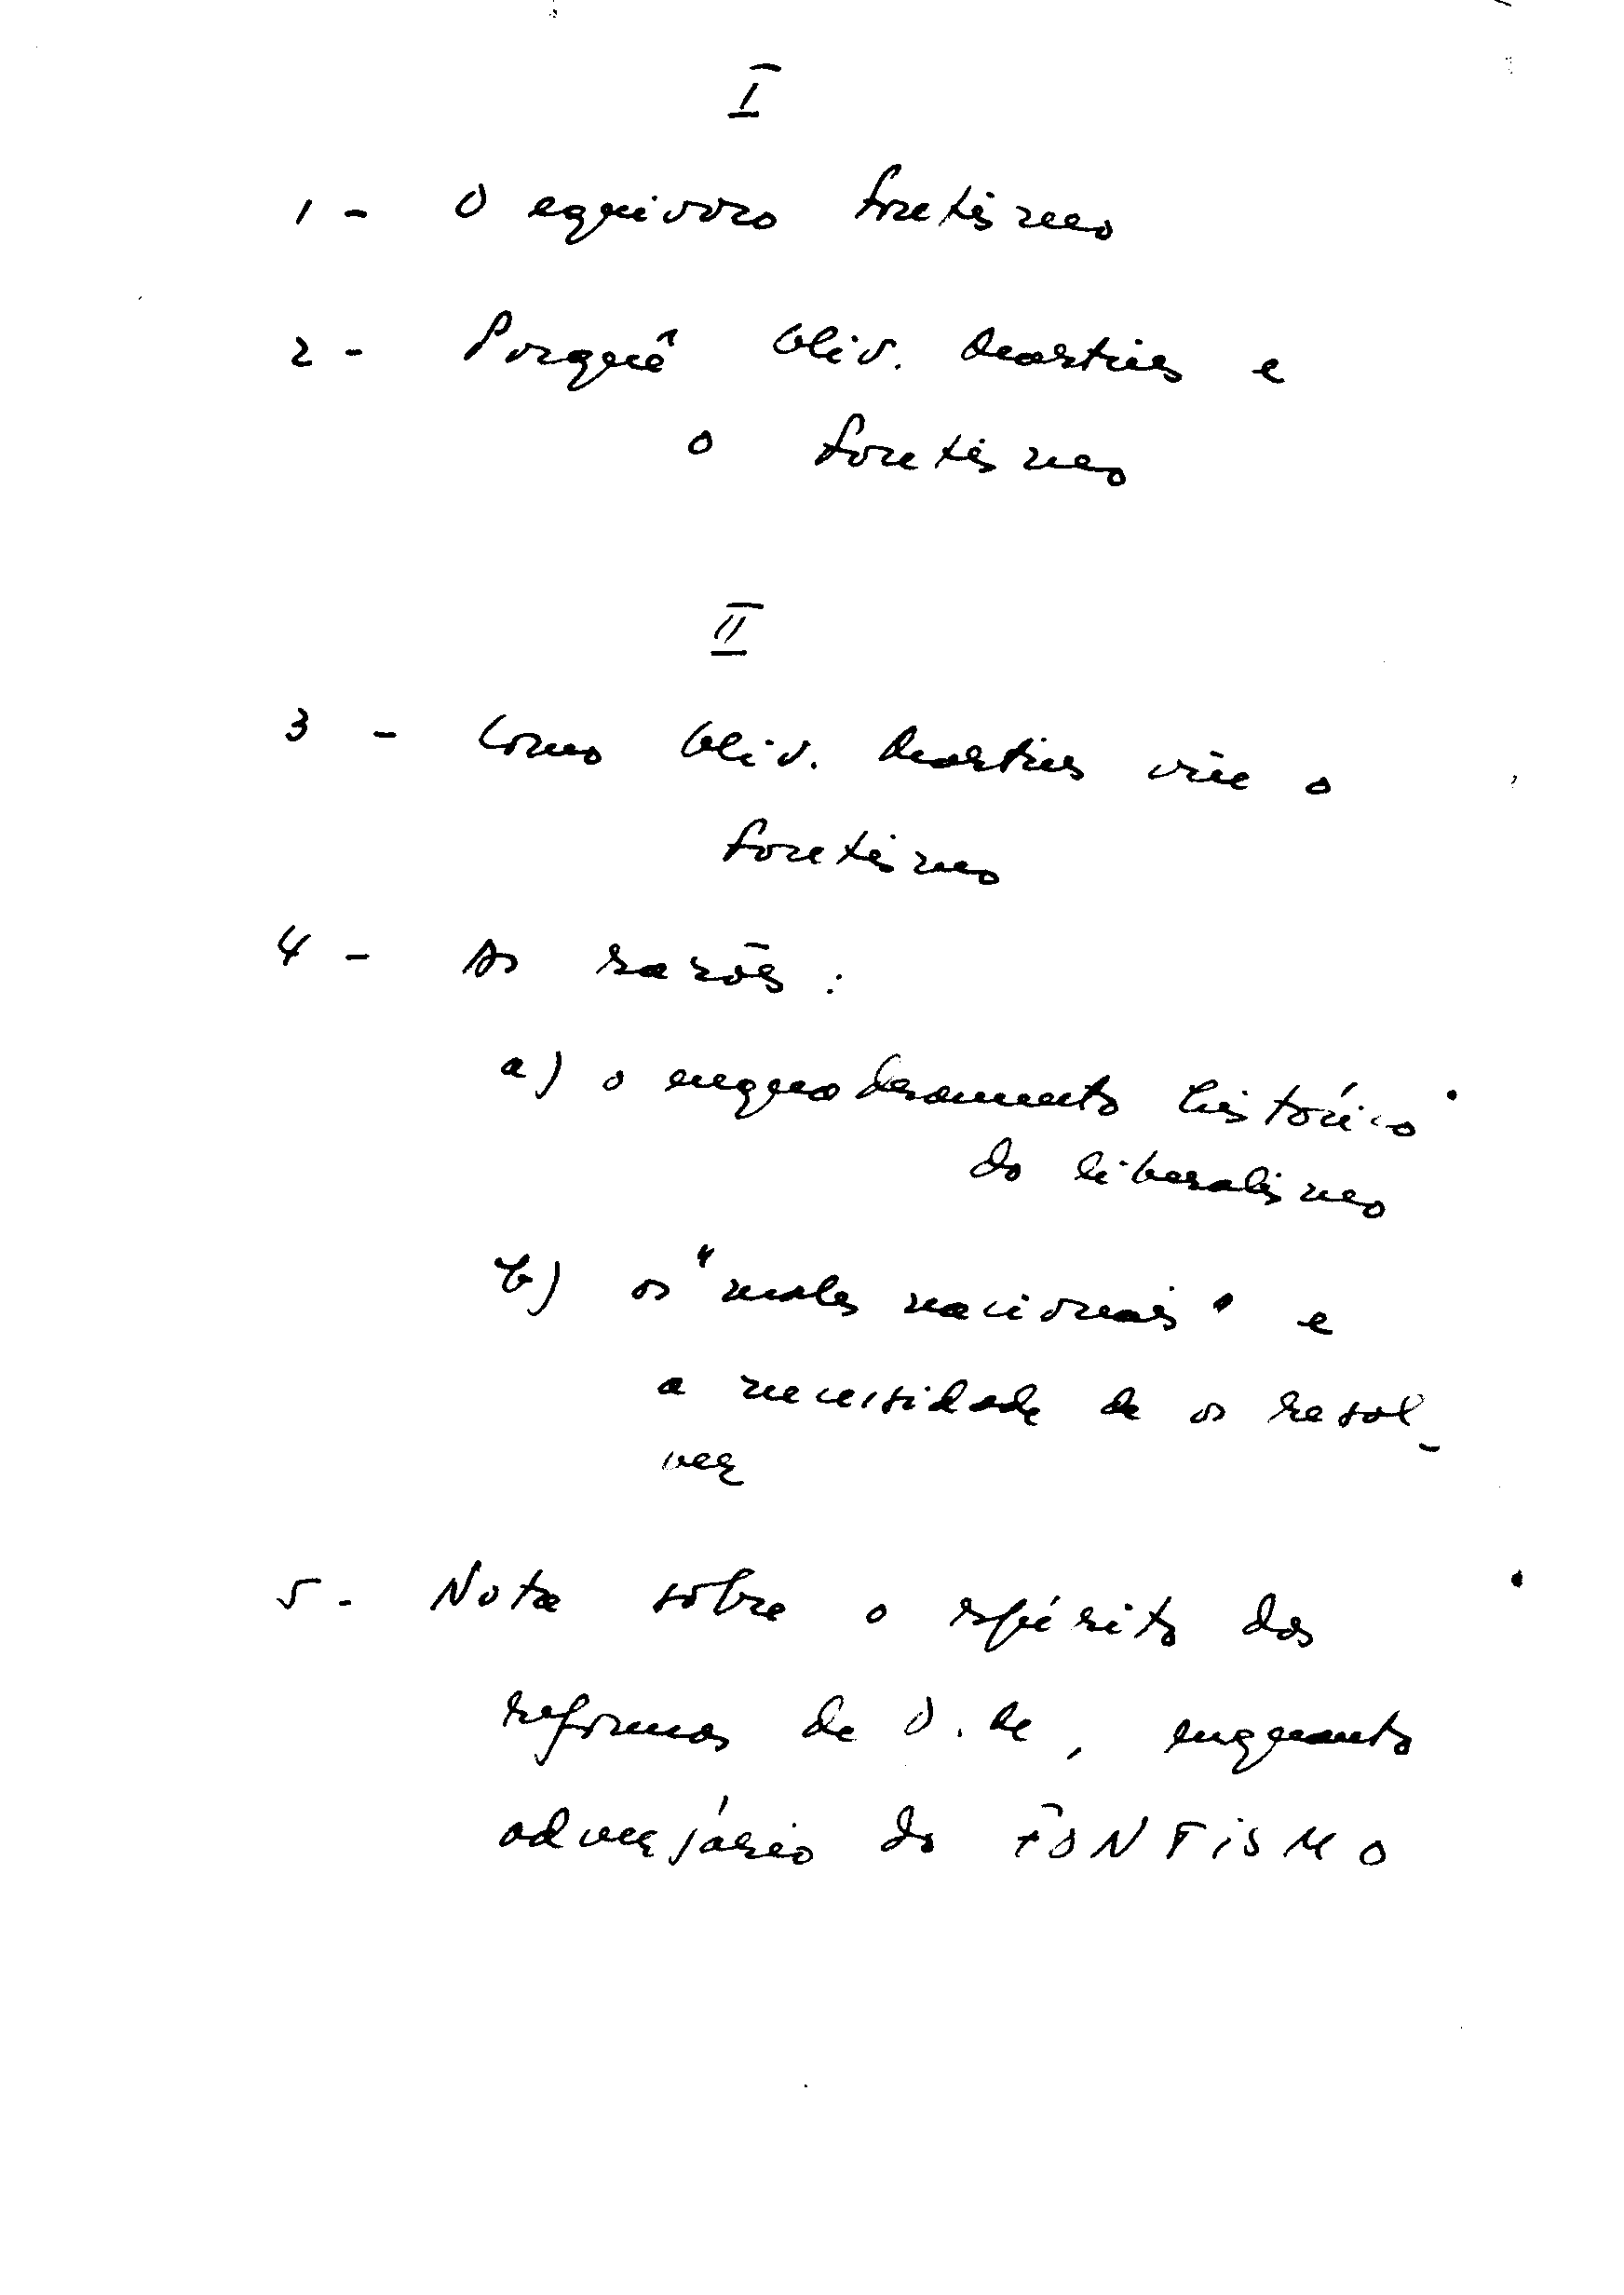 I
1 - O equívoco fontismo
2 - Porquê Oliv. Martins e
o fontismo
II
3 - Como Oliv. Martins viu o
fontismo
4 - As razões :
a) o enquadramento histórico
do liberalismo
b) os "males nacionais" e
a necessidade de os resol-
ver
5 - Nota sobre o espírito das
reformas de O. M, enquanto
adversário do FONTISMO